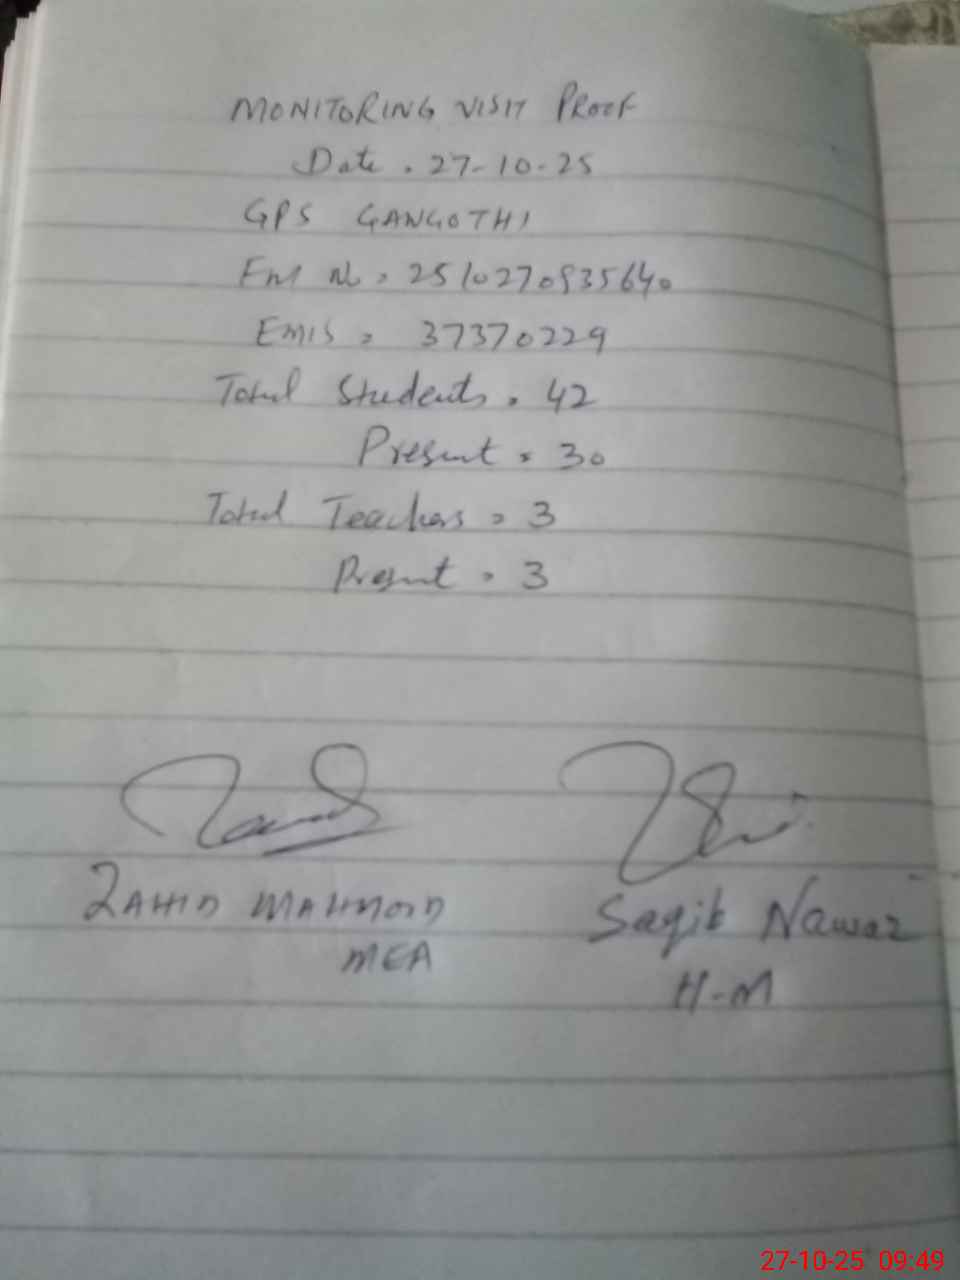 MONITORING VISIT PROOF
Date = 27-10-25
GPS GANGOTHI
= 2510270935640
EMIS = 37370229
Total Students = 42
Present = 30
Total Teachers = 3
Present = 3
ZAHID MAHMOOD
MEA
Saqib Nawaz
H-M
27-10-25 09:49